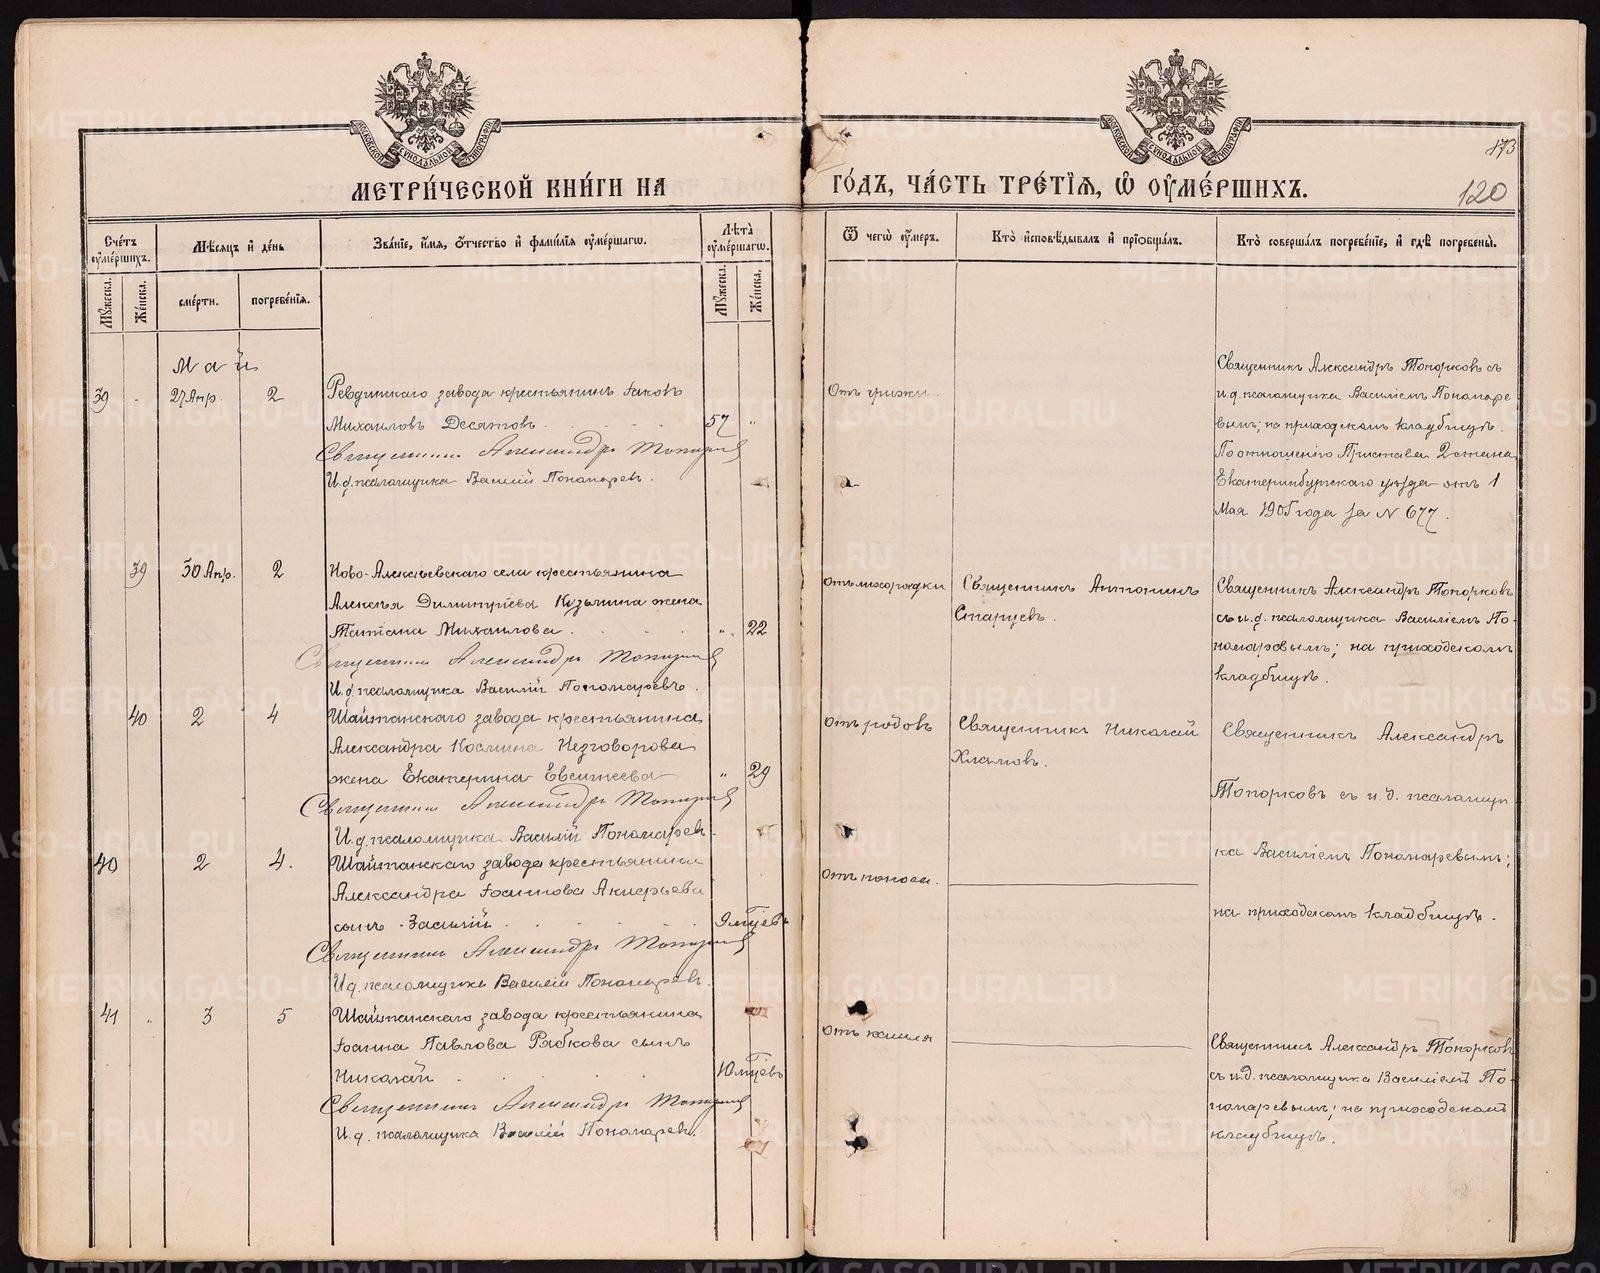 МЕТРИ́ЧЕСКОЙ КНИ́ГИ НА
ГО́ДЪ, ЧА́СТЬ ТРЕ́ТІѦ, Ѡ҆ ОУ҆МЕ́РШИХЪ.
873
120
Сче́тъ оу҆ме́ршихъ.
Мѣ́сѧцъ и҆ де́нь
Зва́нїе, и҆́мѧ, ѻ҆́тчество и҆ фами́лїѧ оу҆ме́ршагѡ.
Лѣ́та оу҆ме́ршагѡ.
Ѿ чегѡ̀ оу҆́меръ.
Кто̀ и҆сповѣ́дывалъ и҆ прїѡбща́лъ.
Кто̀ соверша́лъ погребе́нїе, и҆ гдѣ̀ погребены̀.
Мꙋ́жеска.
Же́нска.
сме́рти.
погребе́нїѧ.
Мꙋ́жеска.
Же́нска.
Май
39
27 Апр.
2
Ревдинскаго завода крестьянинъ Іаковъ
Михаиловъ Десятовъ
57
Священникъ Александръ Топорковъ
И.д. псаломщика Василій Пономаревъ.
Отъ грыжи.
Священникъ Александръ Топорковъ съ
и.д. псаломщика Василіемъ Пономаре
вымъ; на приходскомъ кладбищѣ.
По отношенію Пристава 2 стана
Екатеринбургскаго уѣзда отъ 1
Мая 1905 года за N 677.
39
30 Апр.
2
Ново-Алексѣевскаго села крестьянина
Алексѣя Димитріева Кузьмина жена
Татіана Михаилова
22
Священникъ Александръ Топорковъ
И.д. псаломщика Василій Пономаревъ.
Отъ лихорадки
Священникъ Антонинъ
Старцевъ.
Священникъ Александръ Топорковъ
съ и.д. псаломщика Василіемъ По-
номаревымъ; на приходскомъ
кладбищѣ.
40
2
4
Шайтанскаго завода крестьянина
Александра Космина Незговорова
жена Екатерина Евсигнеева
29
Священникъ Александръ Топорковъ
И.д. псаломщика Василій Пономаревъ
Отъ родовъ
Священникъ Николай
Хламовъ.
Священникъ Александръ
Топорковъ съ и.д. псаломщи
ка Василіемъ Пономаревымъ;
на приходскомъ кладбищѣ.
40
2
4.
Шайтанскаго завода крестьянина
Александра Іоаннова
сынъ Василій
9 мѣсцевъ
Священникъ Александръ Топорковъ
И.д. псаломщика Василій Пономаревъ.
Отъ поноса.
41
3
5
Шайтанскаго завода крестьянина
Іоанна Павлова Рябкова сынъ
Николай
10 мѣсцевъ
Священникъ Александръ Топорковъ
И.д. псаломщика Василій Пономаревъ.
Отъ кашля
Священникъ Александръ Топорковъ
съ и.д. псаломщика Василіемъ По-
номаревымъ; на приходскомъ
кладбищѣ.